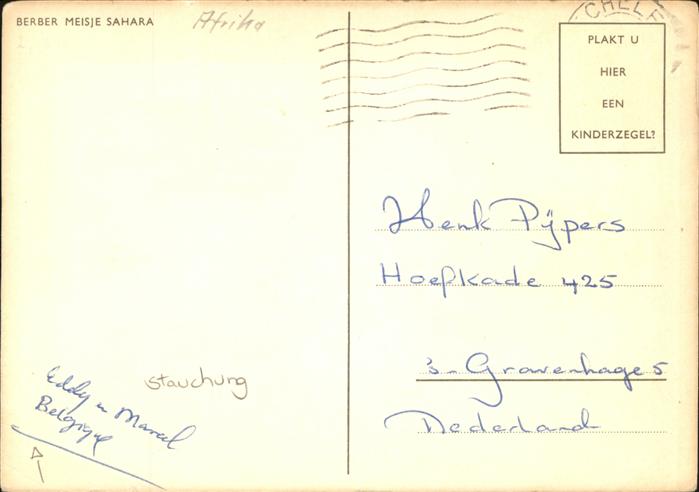 BERBER MEISJE SAHARA
Afrika
CHELF
PLAKT U
HIER
EEN
KINDERZEGEL?
Henk Pijpers
Hoefkade 425
's-Gravenhage 5
Nederland
stauchung
Eddy en Marcel
Belgique